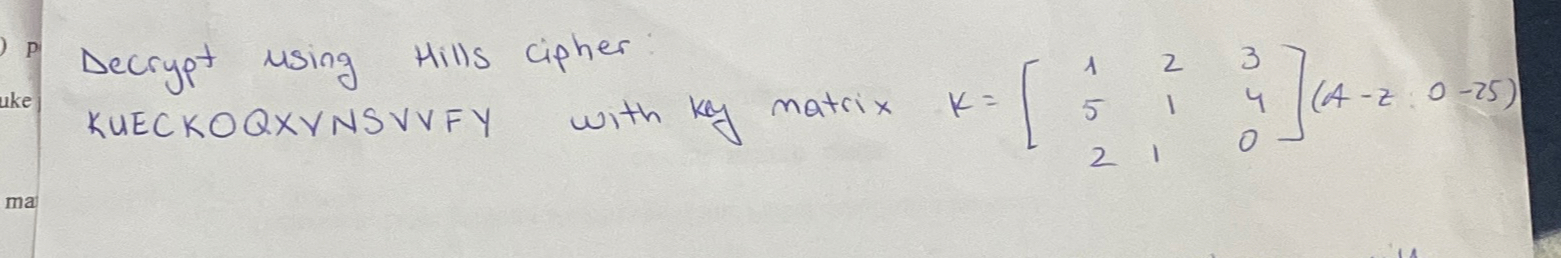 ) p
Decrypt using Hills cipher:
uke
KUECKOQXVNSVVFY with key matrix K = [ 1 2 3
5 1 4
2 1 0 ] (A-Z: 0-25)
ma